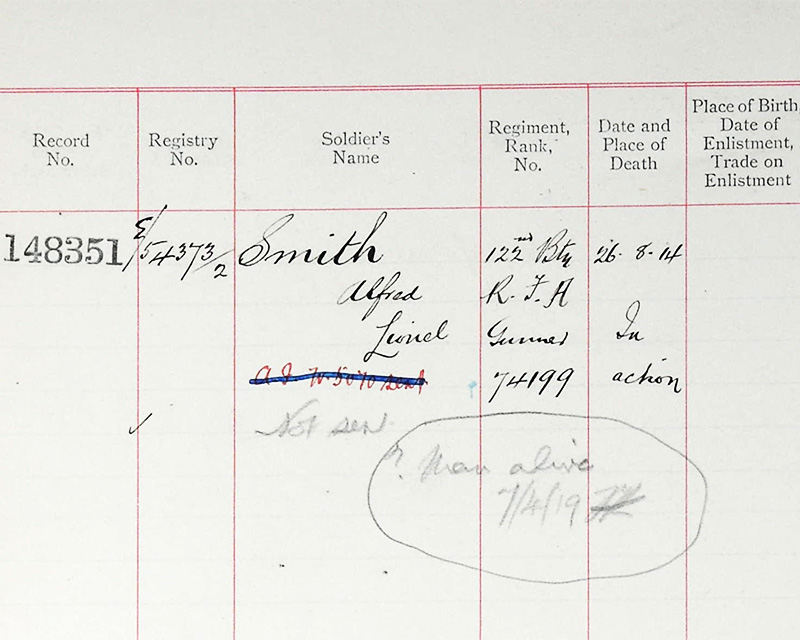 Record No.
Registry No.
Soldier's Name
Regiment, Rank, No.
Date and Place of Death
Place of Birth, Date of Enlistment, Trade on Enlistment
148351
E/54373/2
Smith
122nd Bty
26.8.14
Alfred
R.F.A
Lionel
Gunner
In
74199
action
Not sen
? Man alive
7/4/19